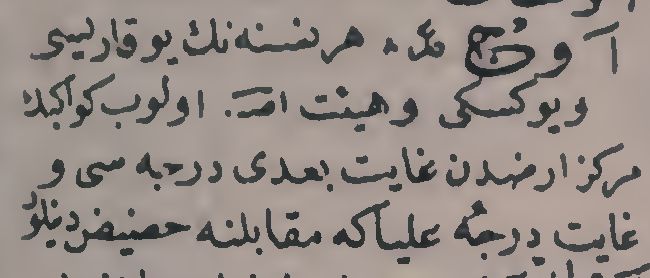 آ وج مذ. هر نسنه نك يوقاريسى
ويوكسكى وهيئت اصـ. اولوب كواكبك
مركز ارضدن غايت بعدى درجه سى و
غايت درجهٔ علياكه مقابلنه حضيض دينلور